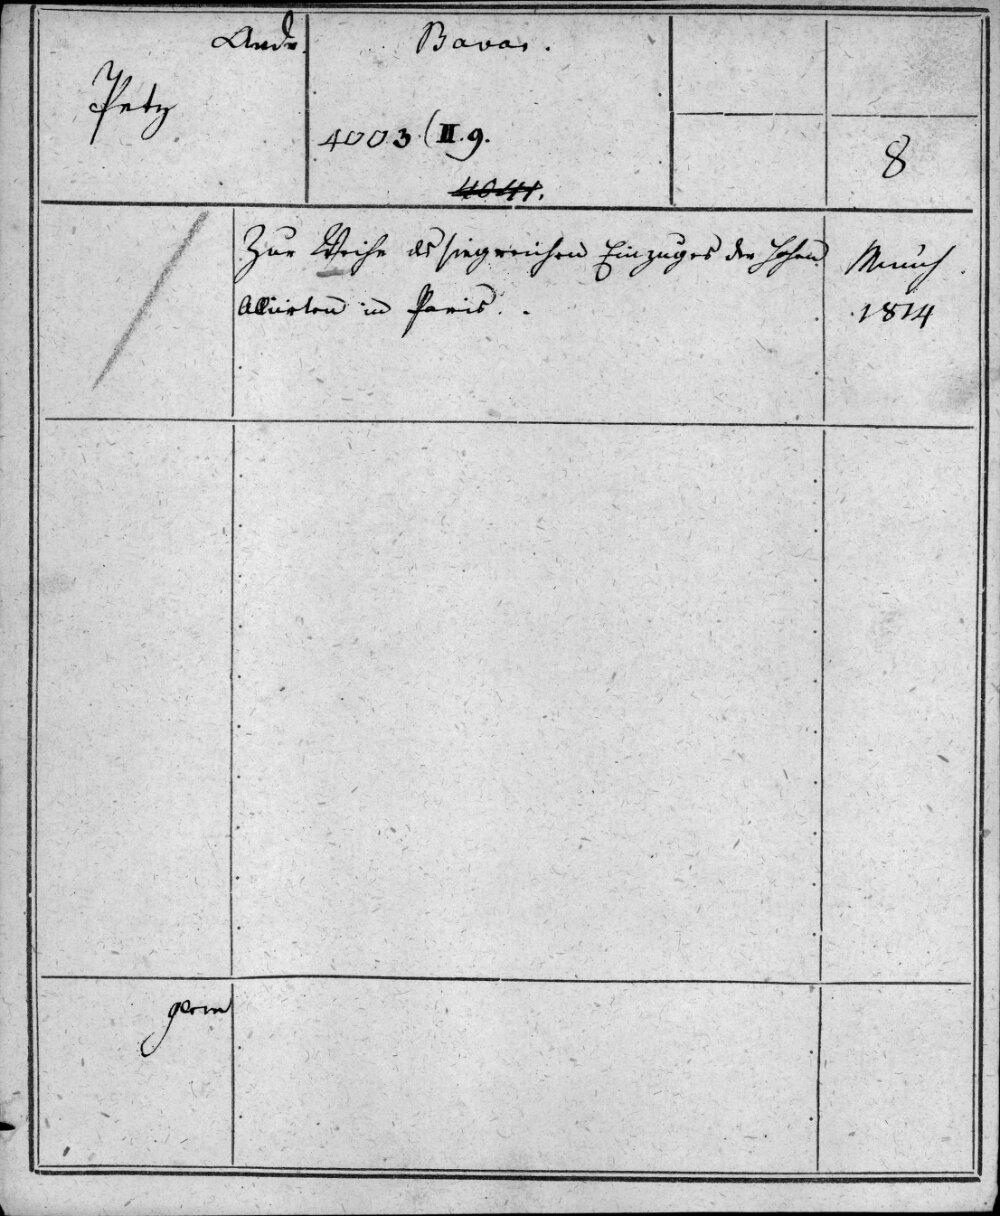 Andr.
Petz
Bavar.
4003 (II. 9.
4041.
8
Zur Weihe des siegreichen Einzuges der hohen
Alliirten in Paris.
Münch.
1814
germ